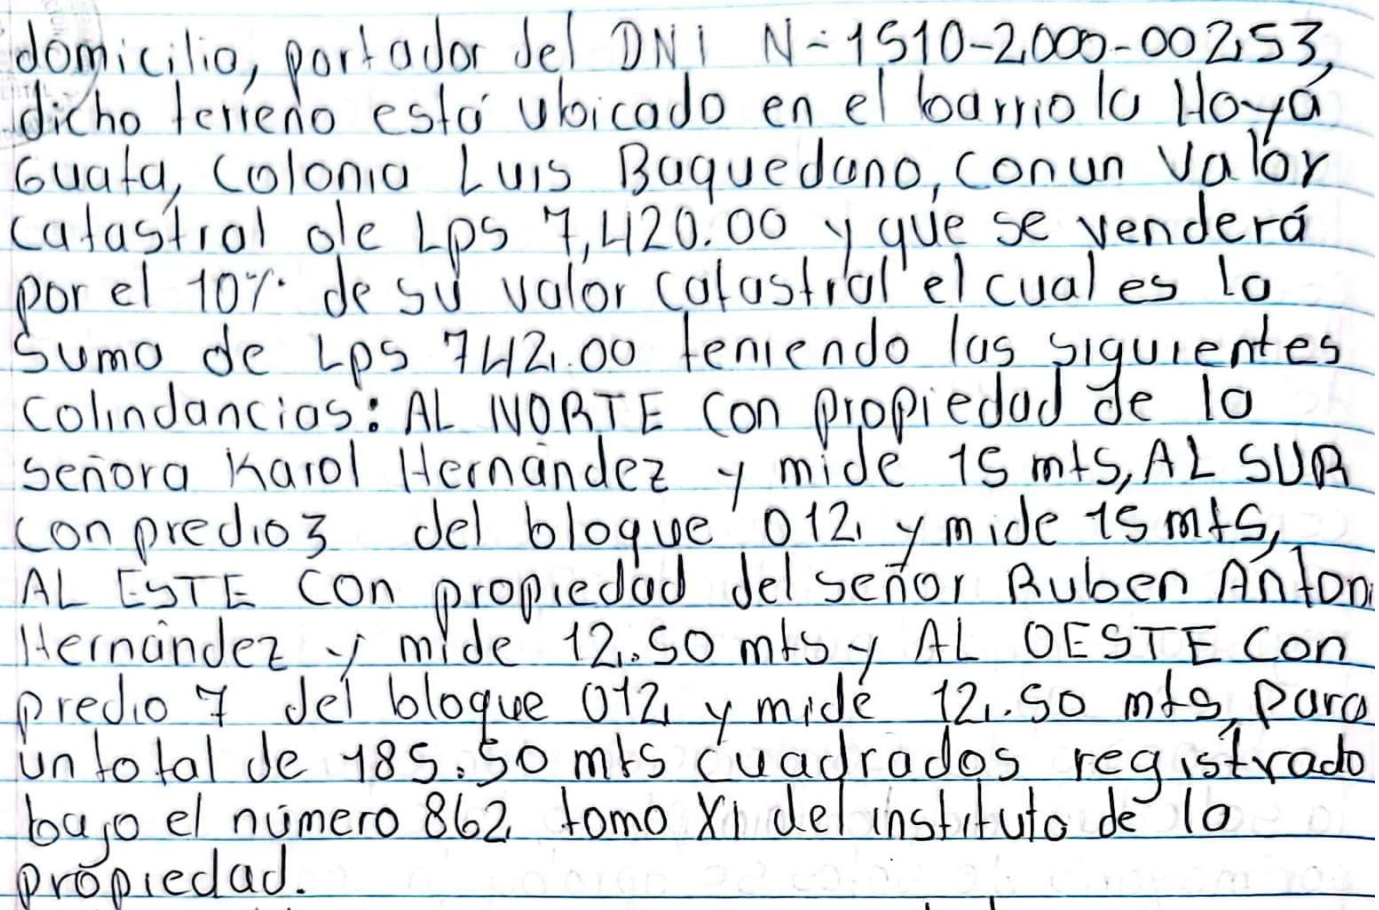 domicilio, portador del DNI N-1510-2000-00253,
dicho terreno está ubicado en el barrio la Hoya
Guata, Colonia Luis Baquedano, con un valor
catastral de Lps 7,420.00 y que se venderá
por el 10% de su valor catastral el cual es la
suma de Lps 742.00 teniendo las siguientes
colindancias: AL NORTE con propiedad de la
señora Karol Hernández y mide 15 mts, AL SUR
con predio 3 del bloque 012 y mide 15 mts,
AL ESTE con propiedad del señor Ruben Antoni
Hernández y mide 12.50 mts y AL OESTE con
predio 7 del bloque 012 y mide 12.50 mts, para
un total de 185.50 mts cuadrados registrado
bajo el número 862 tomo XI del instituto de la
propiedad.